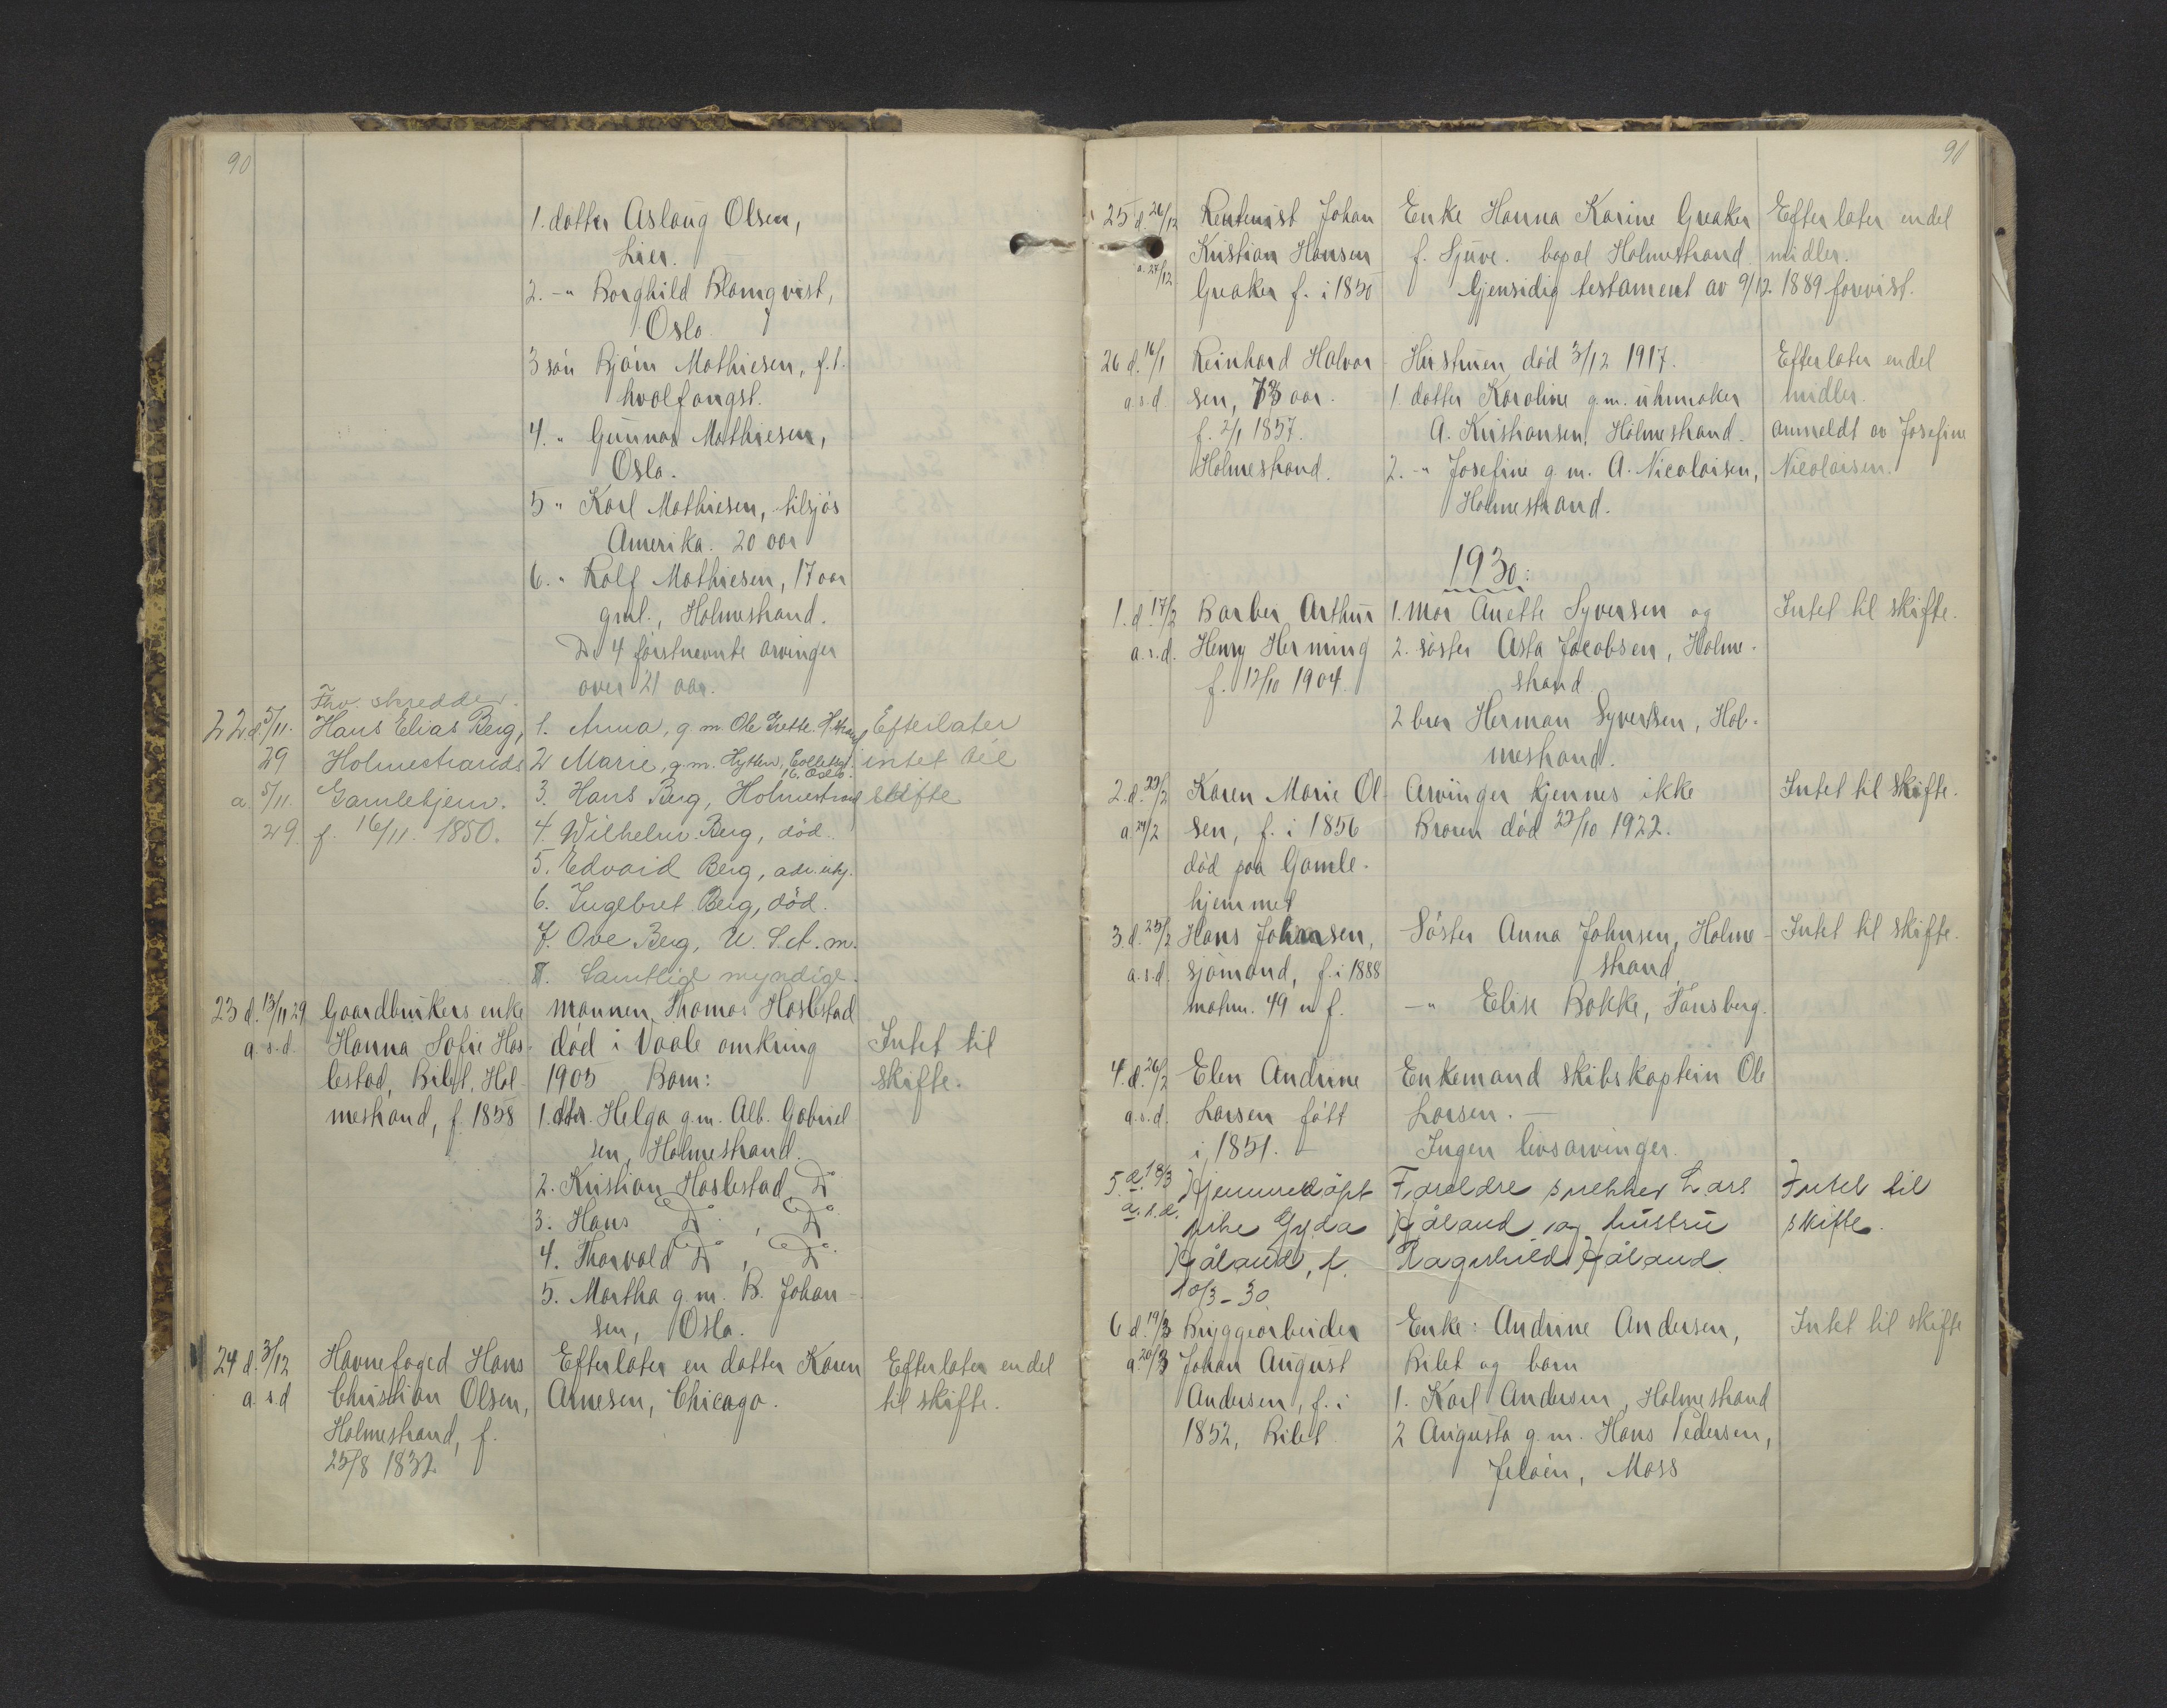 90
1. datter Aslaug Olsen,
Lier.
2. -"- Borghild Blomqvist,
Oslo.
3 sön Björn Mathiesen, f.t.
hvalfangst.
4. " Gunnar Mathiesen,
Oslo.
5 " Karl Mathiesen, tilsjös
Amerika. 20 aar
6. " Rolf Mathiesen, 17 aar
gml., Holmestrand.
De 4 förstnevnte arvinger
over 21 aar.
Fhv. skredder
22. d. 5/11. 29
a. 5/11. 29
Hans Elias Berg,
Holmestrands
Gamlehjem.
f. 16/11. 1850.
1. Anna, g.m. Ole Grette. H.strand
2 Marie, g.m. Hytten, Collettsgt. 16. Oslo.
3. Hans Berg, Holmestrand
4. Wilhelm Berg, död.
5. Edvard Berg, adr. ukj.
6. Ingebret Berg, död.
7. Ove Berg, U.S.A. m.
8. Samtlige myndige.
Efterlater
intet til
skifte
23 d. 13/11 29
a. s.d.
Gaardbrukers enke
Hanna Sofie Has-
lestad, Bilet, Hol-
mestrand, f. 1858
mannen Thomas Haslestad
död i Vaale omkring
1905 Barn:
1. dtr. Helga g.m. Alb. Gabriel
sen, Holmestrand.
2. Kristian Haslestad Do
3. Hans Do , Do
4. Thorvald Do , Do
5. Martha g.m. B. Johan-
sen, Oslo.
Intet til
skifte.
24 d. 3/12
a. s.d
Havnefoged Hans
Christian Olsen,
Holmestrand, f.
25/8 1832
Efterlater en datter Karen
Arnesen, Chicago.
Efterlater endel
til skifte.
91
25 d. 26/12
a. 27/12
Rentenist Johan
Kristian Hansen
Greaker f. i 1850
Enke Hanna Karine Greaker
f. Sjuve. bopæl Holmestrand.
Gjensidig testament av 9/12. 1889 forevist.
Efterlater endel
midler.
26 d. 16/1
a. s.d
Reinhard Halvor-
sen, 73 aar.
f. 2/1 1857.
Holmestrand.
Hustruen död 3/12 1917.
1 datter Karoline g.m. uhrmaker
A. Kristiansen, Holmestrand.
2. -"- Josefine g.m. A. Nicolaisen,
Holmestrand.
Efterlater endel
midler.
anmeldt av Josefine
Nicolaisen.
1930:
1. d. 17/2
a. s. d.
Barber Arthur
Henry Herming
f. 12/10 1904.
1. Mor Anette Syversen og
2. söster Asta Jacobsen, Holme-
strand
2 bror Herman Syversen, Hol-
mestrand.
Intet til skifte.
2. d. 23/2
a 24/2
Karen Marie Ol-
sen, f. i 1856
död paa Gamle-
hjemmet
Arvinger kjennes ikke
Broren död 22/10 1922.
Intet til skifte.
3. d. 25/2
a. s. d.
Hans Johansen,
sjömand, f. i 1888
Söster Anna Johnsen, Holme-
strand
-"- Elise Bakke, Tönsberg.
Intet til skifte.
4. d. 26/2
a. s. d.
Elen Andrine
Larsen født
i 1851.
Enkemand skibskaptein Ole
Larsen.
Ingen livsarvinger.
5. d. 18/3
a. s. d.
Hjemmedöpt
pike Gyda
Kjåland, f.
10/3 - 30
Foreldre snekker Lars
Kjåland og hustru
Ragnhild Kjåland
Intet til
skifte.
6 d. 19/3
a 20/3
Bryggearbeider
Johan August
Andersen, f. i
1852, Bilet
Enke: Andrine Andersen,
Bilet og barn
1. Karl Andersen, Holmestrand
2 Augusta g.m. Hans Pedersen,
Jelöen, Moss
Intet til skifte